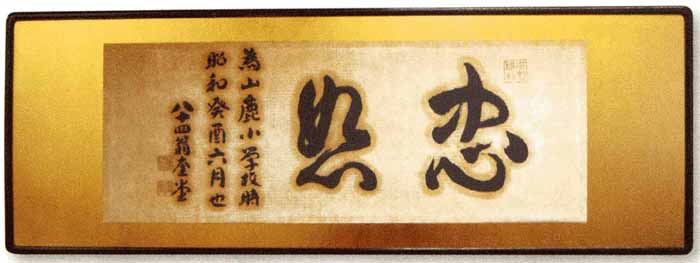 忠恕
為山鹿小学校時
昭和癸酉六月也
八十四翁奎堂